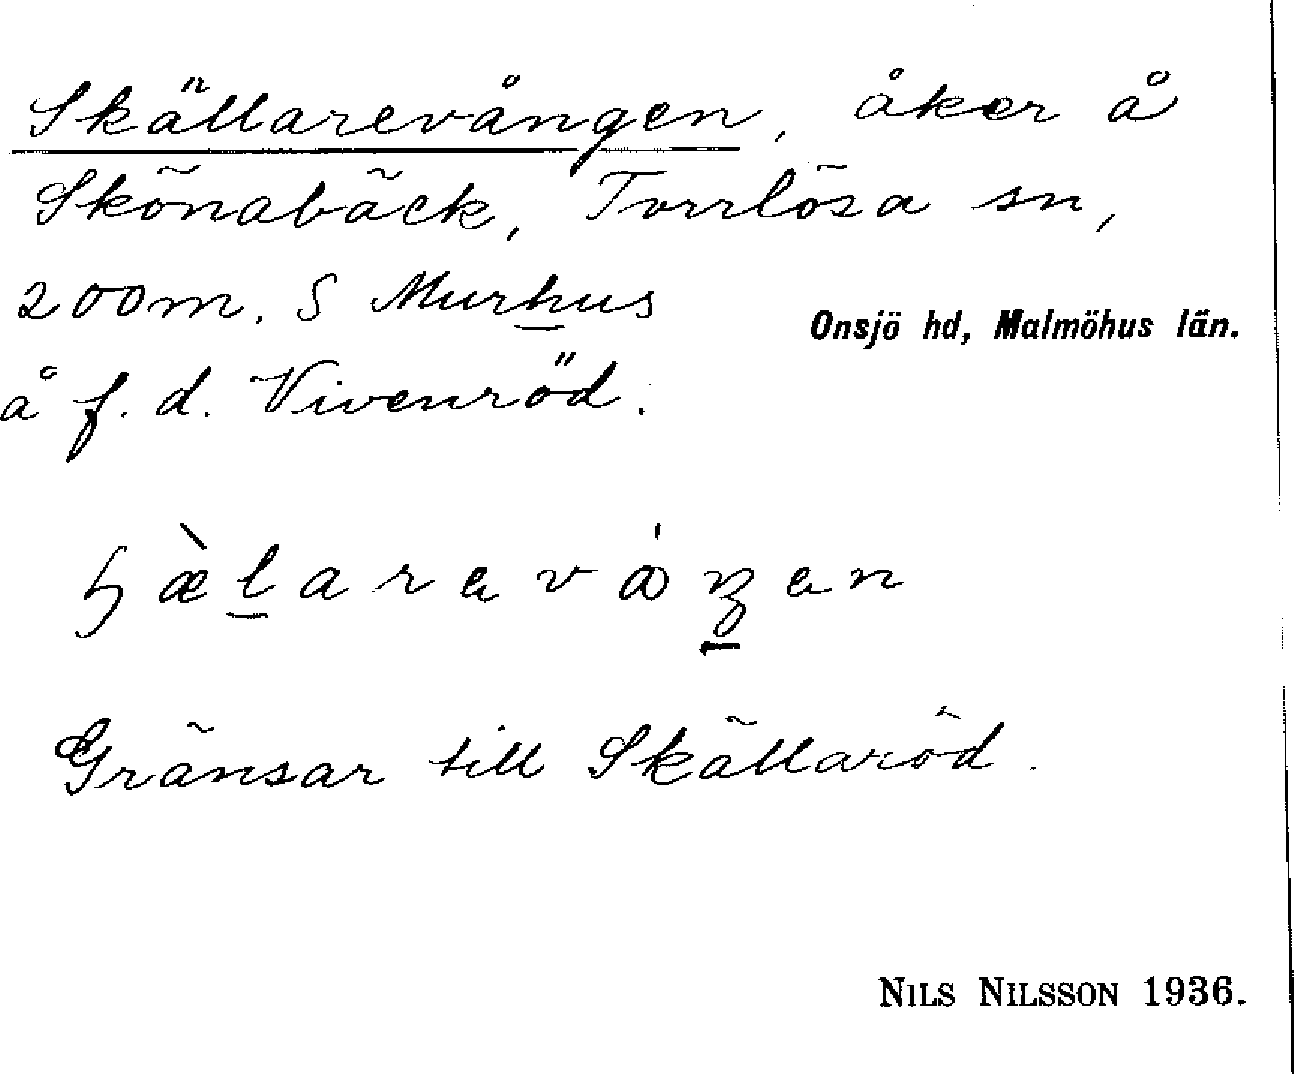 Skällarevången, åker å
Skönabäck, Torrlösa sn,
200m. S Murhus
Onsjö hd, Malmöhus län.
å f. d. Vivenröd.
Gränsar till Skällaröd.
NILS NILSSON 1936.